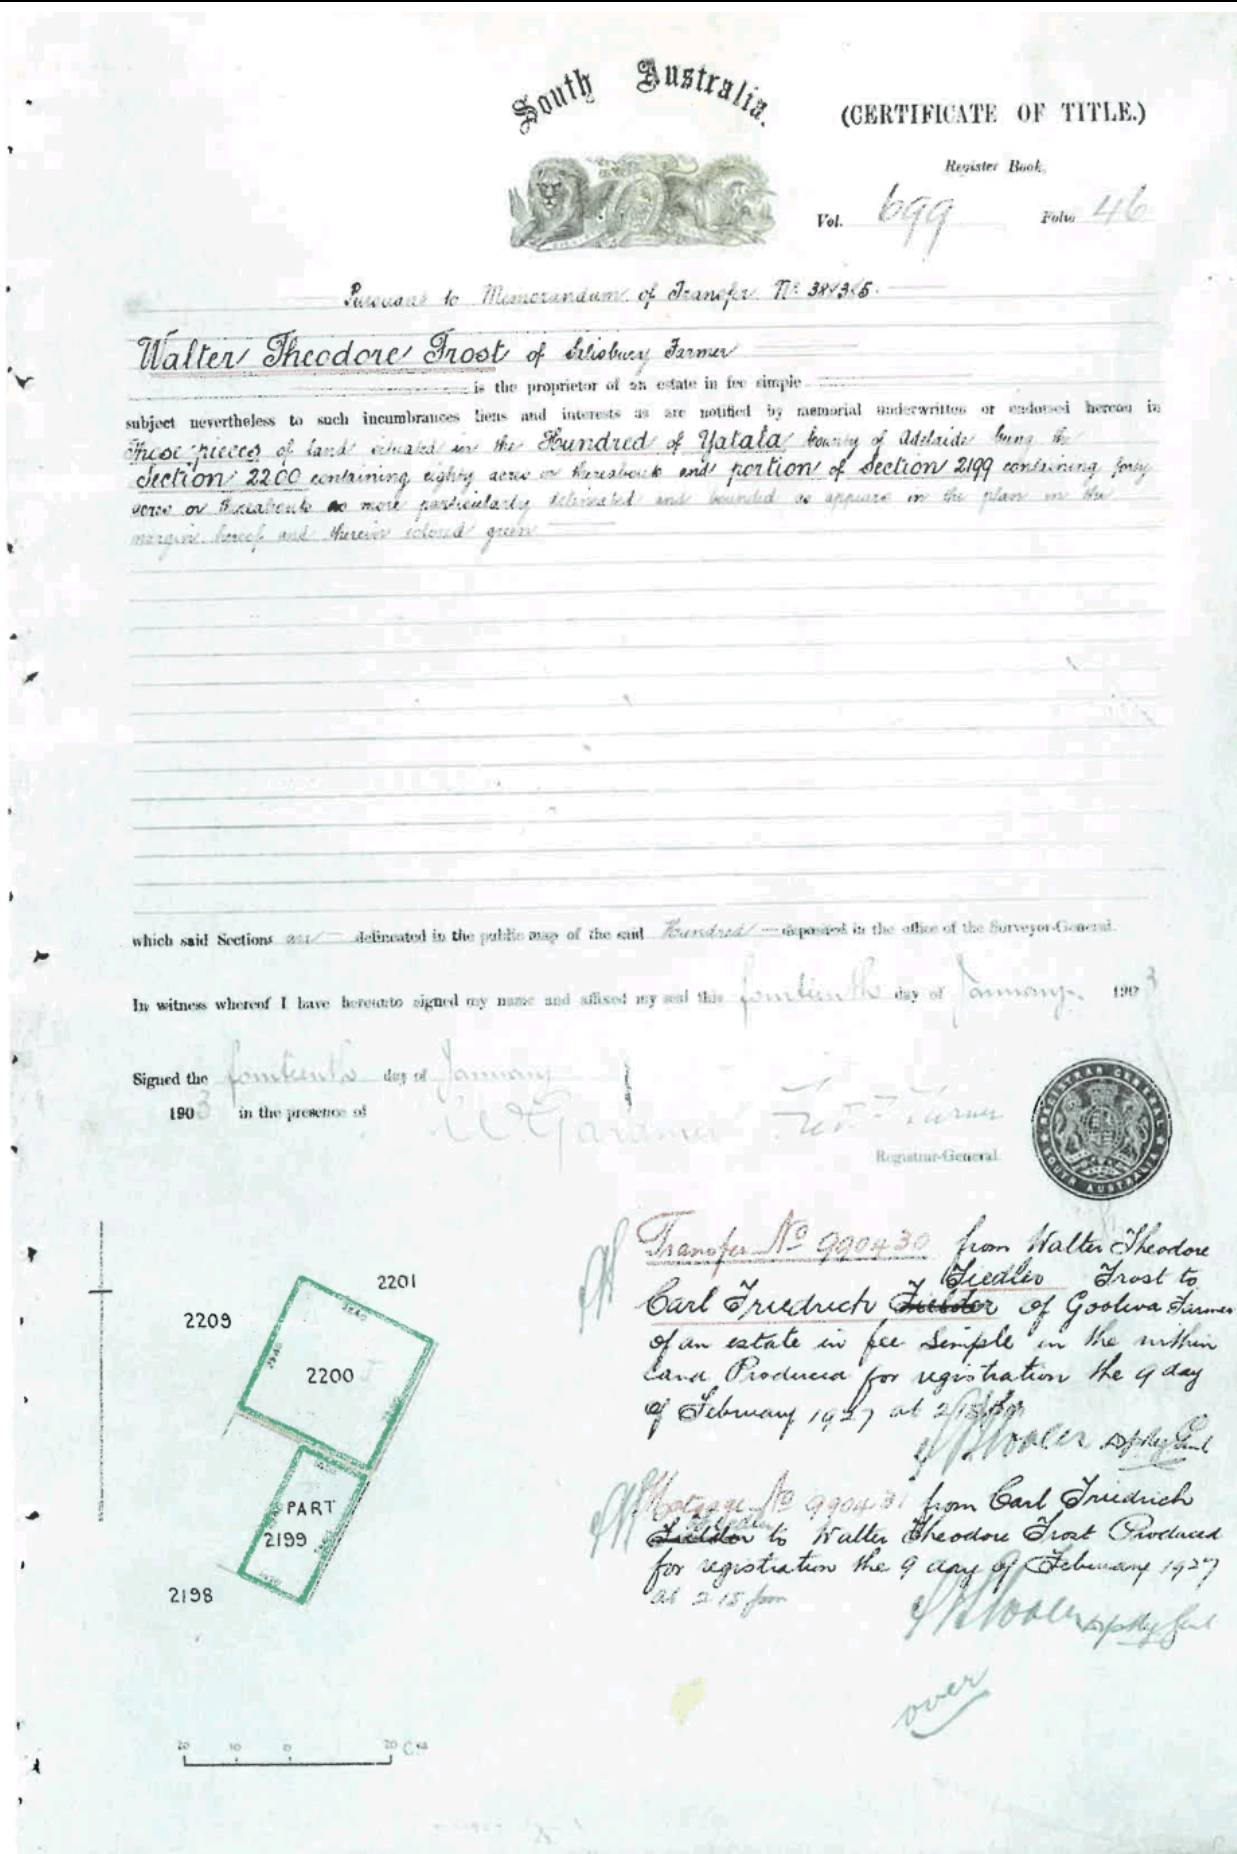 South Australia.
(CERTIFICATE OF TITLE.)
Register Book,
Vol. 699 Folio 46
Pursuant to Memorandum of Transfer No.
Walter Theodore Frost of Salisbury Farmer
is the proprietor of an estate in fee simple
subject nevertheless to such incumbrances liens and interests as are notified by memorial underwritten or endorsed hereon in
those pieces of land situated in the Hundred of Yatala County of Adelaide being the
Section 2200 containing eighty acres or thereabouts and portion of Section 2199 containing forty
acres or thereabouts as more particularly delineated and bounded as appears in the plan in the
margin hereof and therein colored green
which said Sections are delineated in the public map of the said Hundred deposited in the office of the Surveyor-General.
In witness whereof I have hereunto signed my name and affixed my seal this fourteenth day of January 1903
Signed the fourteenth day of January
1903 in the presence of
Registrar-General
REGISTRAR GENERAL SOUTH AUSTRALIA
Transfer No 990430 from Walter Theodore
Fiedler Frost to
Carl Friedrich of Farmer
of an estate in fee simple in the within
land Produced for registration the 9 day
of February 1927 at 2.15 pm
Mortgage No 990431 from Carl Friedrich
Fiedler
to Walter Theodore Frost Produced
for registration the 9 day of February 1927
at 2 15 pm
over
2201
2209
2200
PART
2199
2198
20 10 0 20 Chs